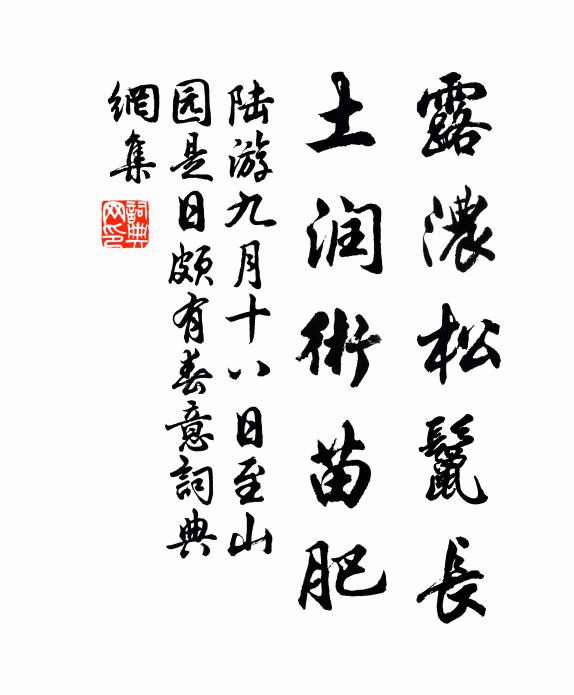 露濃松鬣長
土润術苗肥
陆游九月十八日至山
园是日頗有春意詞典
網集
詞典
网印